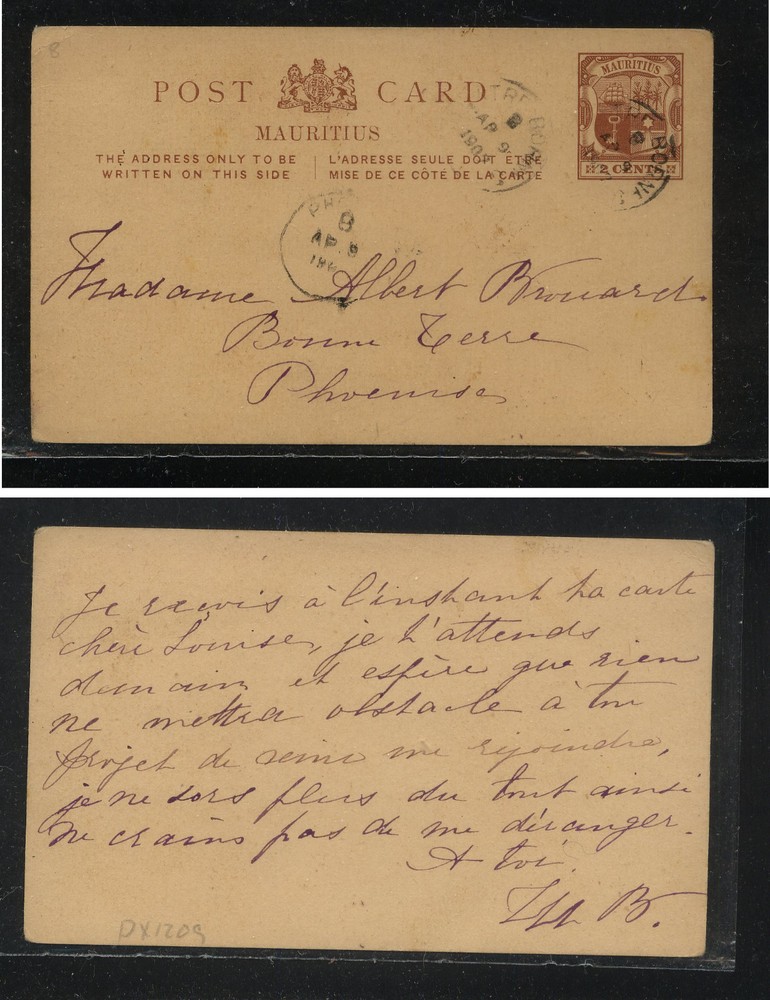 8
POST CARD
MAURITIUS
THE ADDRESS ONLY TO BE
WRITTEN ON THIS SIDE
L'ADRESSE SEULE DOIT ETRE
MISE DE CE CÔTÉ DE LA CARTE
MAURITIUS
2 CENTS
B
AP 9
190
B
AP 9
PH
B
AP 9
19
Madame Albert Brouard
Bonne Terre
Phoenix
Je reçois à l'instant ta carte
chère Louise, je t'attends
demain et espère que rien
ne mettra obstacle à ton
projet de venir me rejoindre,
je ne sors plus du tout ainsi
ne crains pas de me déranger.
A toi
B.
PX1209